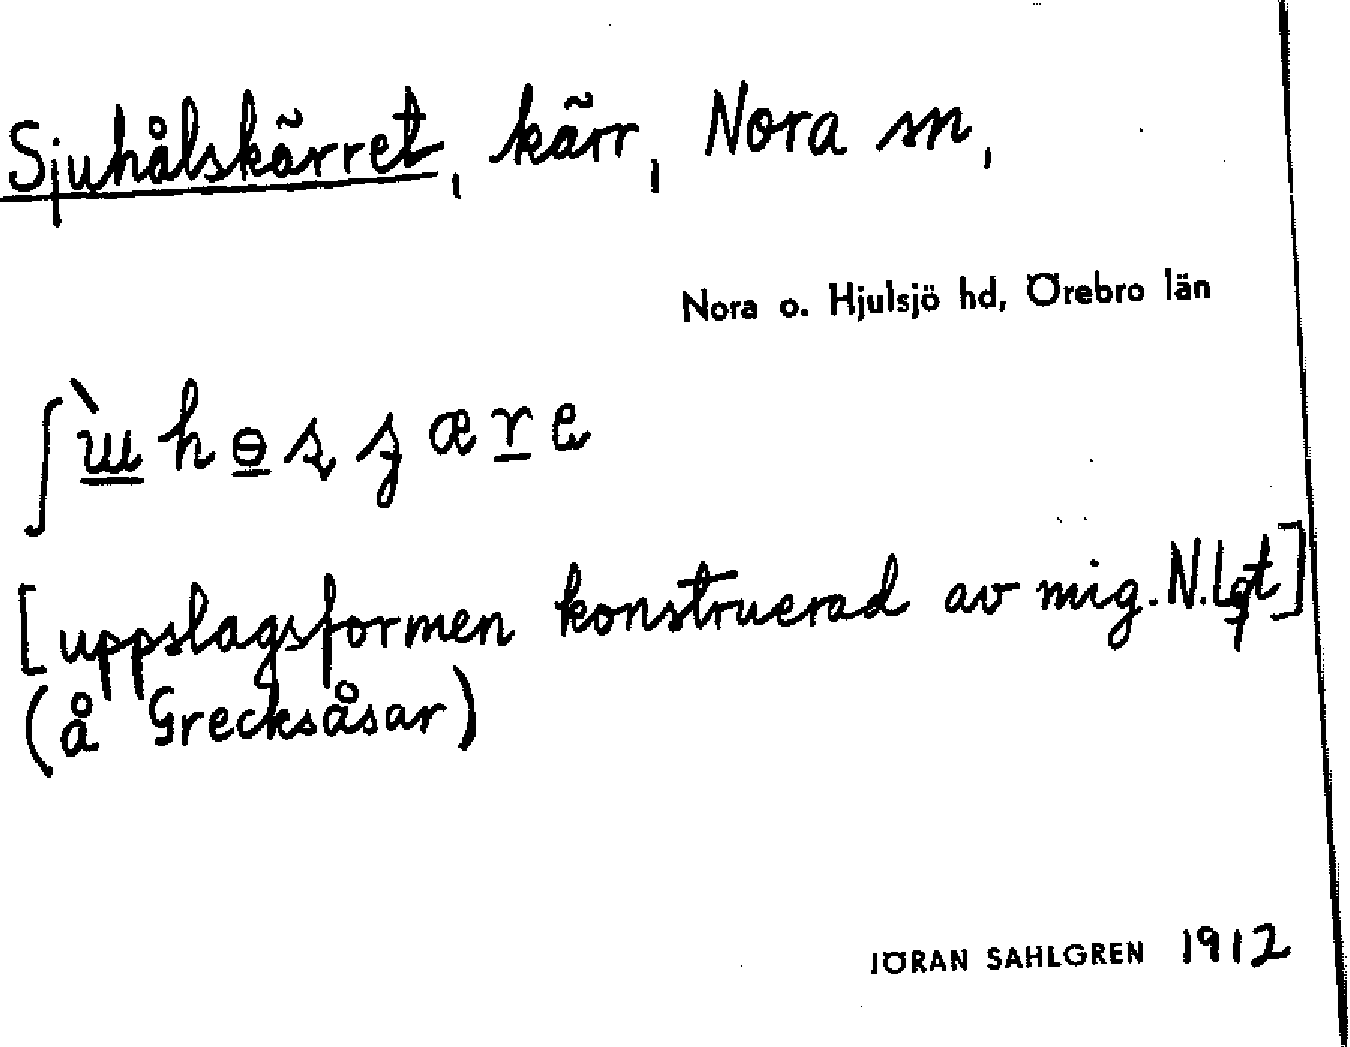 Sjuhålskärret, kärr, Nora sn,
Nora o. Hjulsjö hd, Örebro län
[uppslagsformen konstruerad av mig. N.Lqt]
(å Grecksåsar)
JÖRAN SAHLGREN 1912